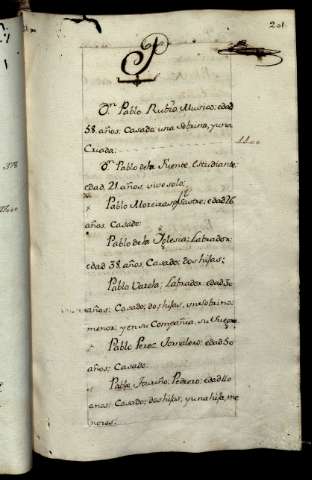 201
P
Dn. Pablo Rubio, Musico; edad
58. años; Casado; una Sobrina, y una
Criada.
1100
Dn. Pablo de la Fuente, Estudiante;
edad, 21 años, vive solo.
Pablo Moreira, Sastre; edad 26
años. Casado.
Pablo de la Yglesia; Labrador;
edad 38. años; Casado; dos hijas;
Pablo Varela; Labrador edad 50
años; Casado; dos hijas, un sobrino
menor; y en su Compañia, su Suegra
Pablo Perez Jornalero; edad 50
años; Casado.
Pablo Pedrero; edad 40
anos; Casado; dos hijas, y una hija, me
nores.